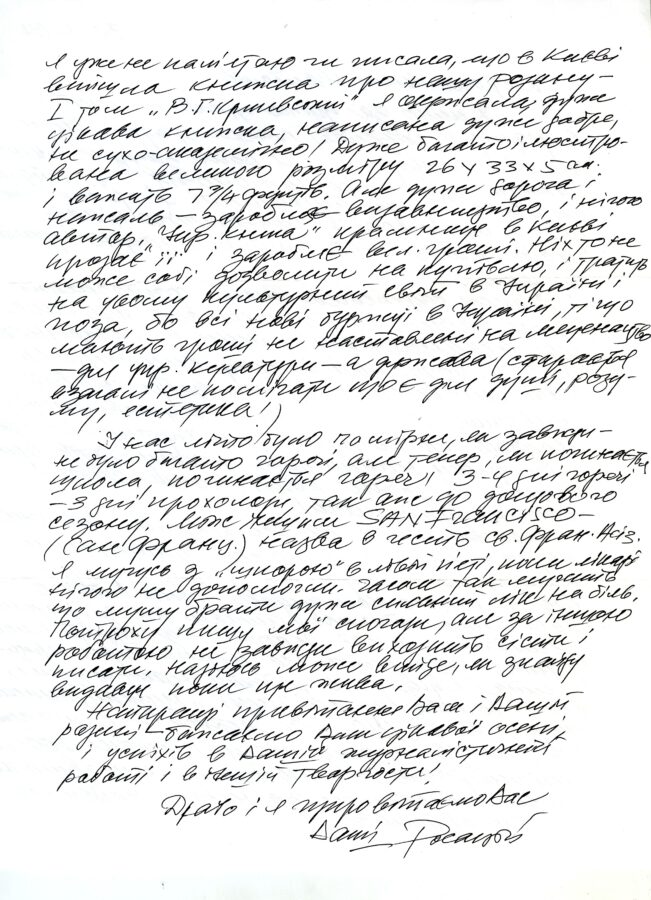 Я уже не пам'ятаю чи писала, що в Києві
вийшла книжка про нашу родину —
І том „В.Г. Кричевський" Я одержала, дуже
цікава книжка, написана дуже добре,
не сухо-академічно! Дуже багато ілюстро-
вана великого розміру 26 x 33 x 5 см.
і важить 7 3/4 фунтів. Але дуже дорога і
нажаль — заробляє видавництво, і нічого
автор, „Укр. книга" крамниця в Києві
продає її і заробляє вел. гроші. Ніхто не
може собі дозволити на купівлю, і тратить
на цьому культурний світ в Україні і
поза, бо всі нові буржуї в Україні, ті що
мають гроші не наставлені на меценатство
— для укр. культури — а держава (старається
взагалі не помічати що є для душі, розу-
му, естетика!)
У нас літо було помірне, як завжди —
не було багато гарячі, але тепер, як починається
школа, починається гаряч! 3-4 дні гарячі
— 3 дні прохолоди, так аж до дощового
сезону. Може тому SAN FRANCISCO —
(Сан Франц.) назва в честь св. Фран. Асіз.
Я мучусь з „шпорою" в лівій п'яті, поки лікарі
нічого не допомогли. Часом так мучить
що мушу брати дуже сильний лік на біль.
Потроху пишу мої спогади, але за іншою
роботою не завжди виходить сісти і
писати. Надіюсь може вийде, як знайду
видавця поки ще жива.
Найкращі привітання Вам і Вашій
родині — бажаємо Вам цікавої осені,
і успіхів в Вашій журналістичній
роботі і в іншій творчості!
Драго і я привітаємо Вас
Ваші